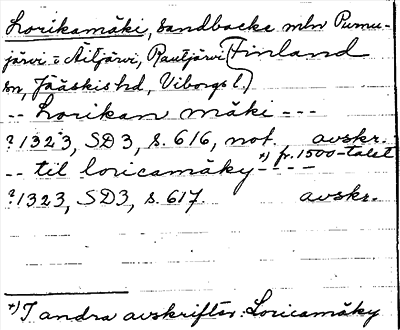 Lorikamäki, sandbacke mln Purnu-
järvi o Äitjärvi, Rautjärvi (Finland
sn, Jääskis hd, Viborgs l.)
-- Lorikan mäki ---
?1323, SD3, s. 616, not. avskr.
+) fr. 1500-talet
-- til loricamäky ----
?1323, SD3, s. 617. avskr.
+) I andra avskrifter: Loricamäky